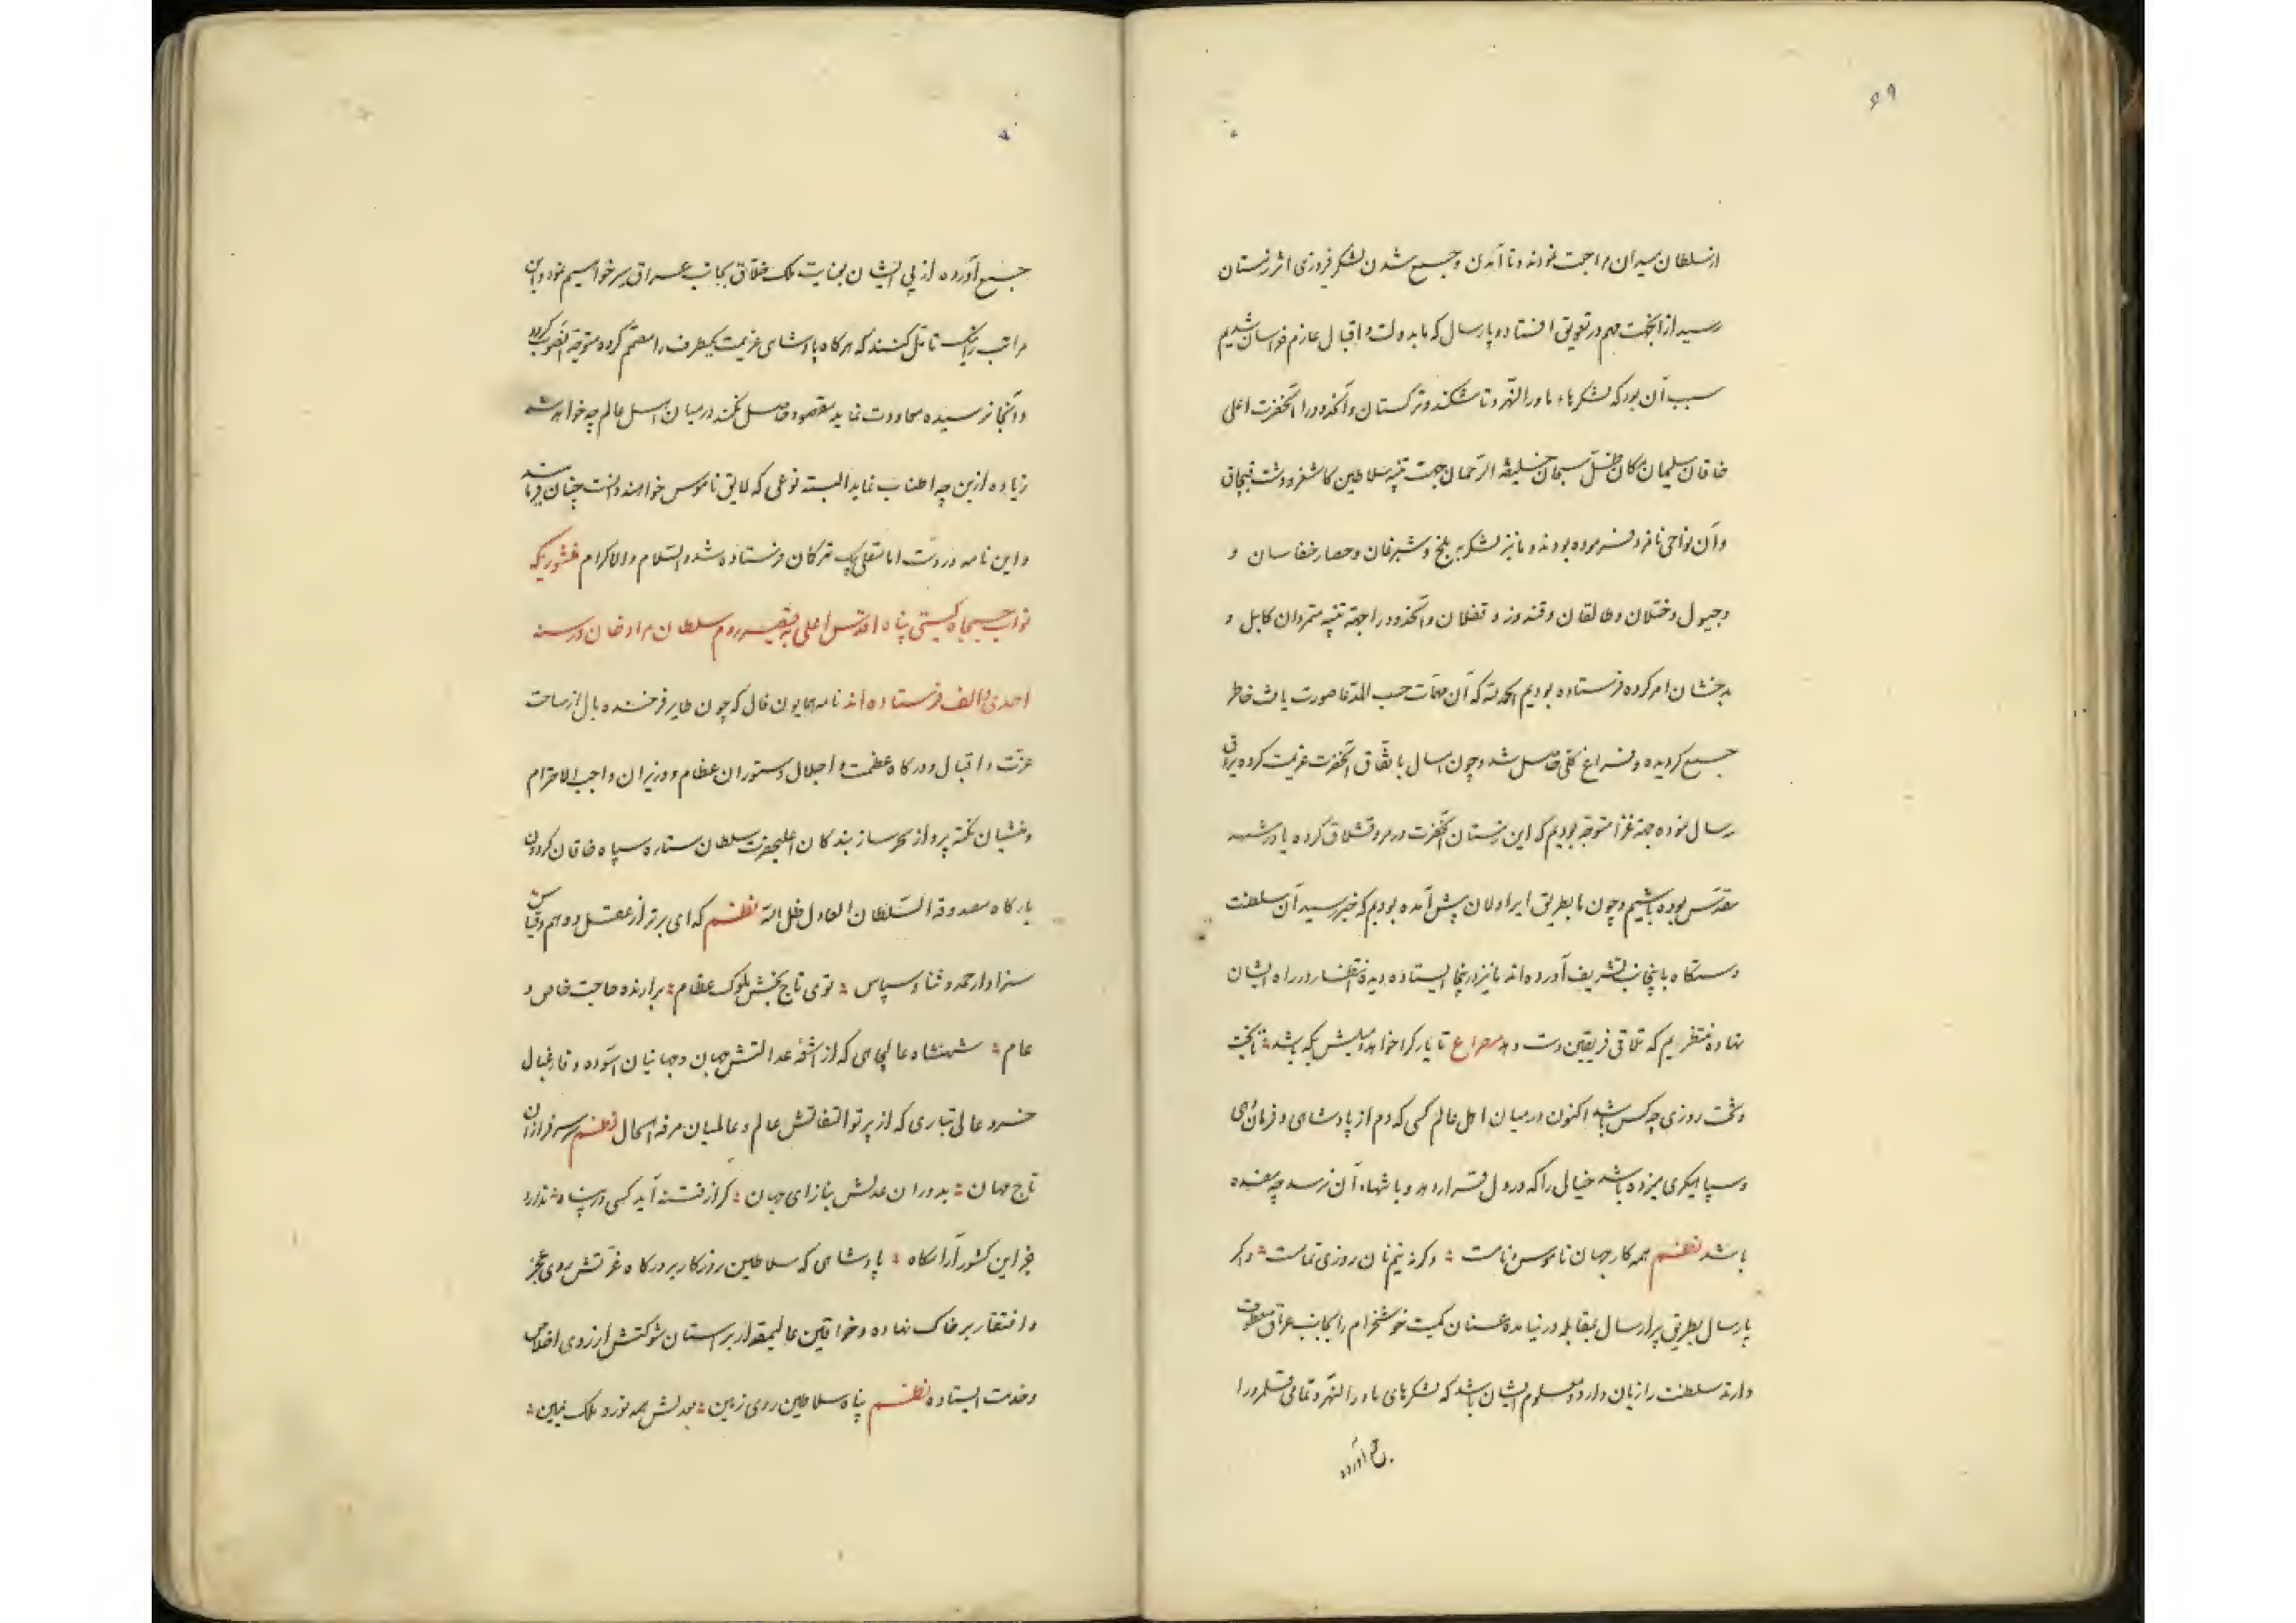 ۶۹
از سلطان میدان مراجعت نمودند و تا آمدن و جمع شدن لشکر فیروزی اثر زمستان
رسید از آنجهت مهم در تعویق افتاد و پارسال که ما بدولت و اقبال عازم خراسان شدیم
سبب آن بود که لشکرهاء ماورالنهر و تاشکند و ترکستان و آنحدود را آنحضرت اعلی
خاقان سلیمان مکان ظل سبحان خلیفه الرحمان جهت تنبیه سلاطین کاشغر و دشت قبچاق
و آن نواحی نامزد فرموده بودند و ما نیز لشکر به بلخ و شبرغان و حصار و
و ختلان و طالقان و قندوز و و آنحدود را جهة تنبیه متمردان کابل و
بدخشان امر کرده فرستاده بودیم الحمد لله که آن مهمات حسب المدعا صورت یافت خاطر
جمع گردیده و فراغ کلی حاصل شد و چون امسال باتفاق آنحضرت عزیمت کرده یراق
رسال نموده جهة غزا متوجه بودیم که این زمستان آنحضرت در مرو قشلاق کرده ما در مشهد
مقدس بوده باشیم و چون ما بطریق ایراولان پیش آمده بودیم که خبر رسید آن سلطنت
دستگاه باینجانب تشریف آورده‌اند ما نیز در اینجا ایستاده دیده انتظار در راه ایشان
نهاده منتظریم که تلاقی فریقین دست دهد مصراع تا یار کرا خواهد و میلش بکه باشد تا بخت
و تخت روزی چه کس باشد اکنون در میان اهل عالم کسی که دم از پادشاهی و فرماندهی
و سپاهیگری میزده باشد خیالی را که در دل قرار دهد و با نتهاء آن نرسد چه عقیده
باشد نظم همه کار جهان ناموس و نامست و گرنه نیم نان روزی تمامست و اگر
پارسال بطریق پیرارسال بمقابله در نیامده عنان کمیت خوشخرام را بجانب عراق معطوف
دارند سلطنت را زیان دارد و معلوم ایشان باشد که لشکرهای ماورالنهر و تمامی قلمرو را
جمع آورده
جمع آورده از پی ایشان بعنایت ملک خلاق بجانب عراق بسر خواهیم نمود و این
مراتب را نیک تامل کنند که هرگاه پادشاهی عزیمت یکطرف را مصمم کرده متوجه آنصوب گردد
و آنجا نرسیده معاودت نماید مقصود حاصل نکند در میان اهل عالم چه خواهد شد
زیاده ازین چه اطناب نماید البته نوعی که لایق ناموس خواهند دانست چنان فرمایند
و این نامه در دست امانتقلی بیک ترکان فرستاده شد و السلام و الاکرام منشوریکه
نواب جمجاه گیتی پناه اقدس اعلی به قیصر روم سلطان مراد خان در سنه
احدی و الف فرستاده‌اند نامه همایون فال که چون طایر فرخنده بال از ساحت
عزت و اقبال و درگاه عظمت و اجلال دستوران عظام و وزیران واجب الاحترام
و منشیان نکته پرداز سحر ساز بندگان اعلیحضرت سلطان ستاره سپاه خاقان گردون
بارگاه مصدوقه السلطان العادل ظل الله نظم که ای برتر از عقل و وهم و قیاس
سزاوار حمد و ثنا و سپاس توی تاج بخش ملوک عظام برارنده حاجت خاص و
عام شهنشاه عالیجاهی که از اشعه عدالتش جهان و جهانیان آسوده و فارغبال
خسرو عالی تباری که از پرتو التفاتش عالم و عالمیان مرفه الحال نظم سر سرفرازان
تاج مهان بدوران عدلش بنازای جهان گر از فتنه آید کسی در پناه ندارد
جز این کشور آرامگاه پادشاهی که سلاطین روزگار بر درگاه عزتش روی عجز
و افتقار بر خاک نهاده و خواقین عالیمقدار بر آستان شوکتش از روی اخلاص
و خدمت ایستاده نظم پناه سلاطین روی زمین بعدلش همه